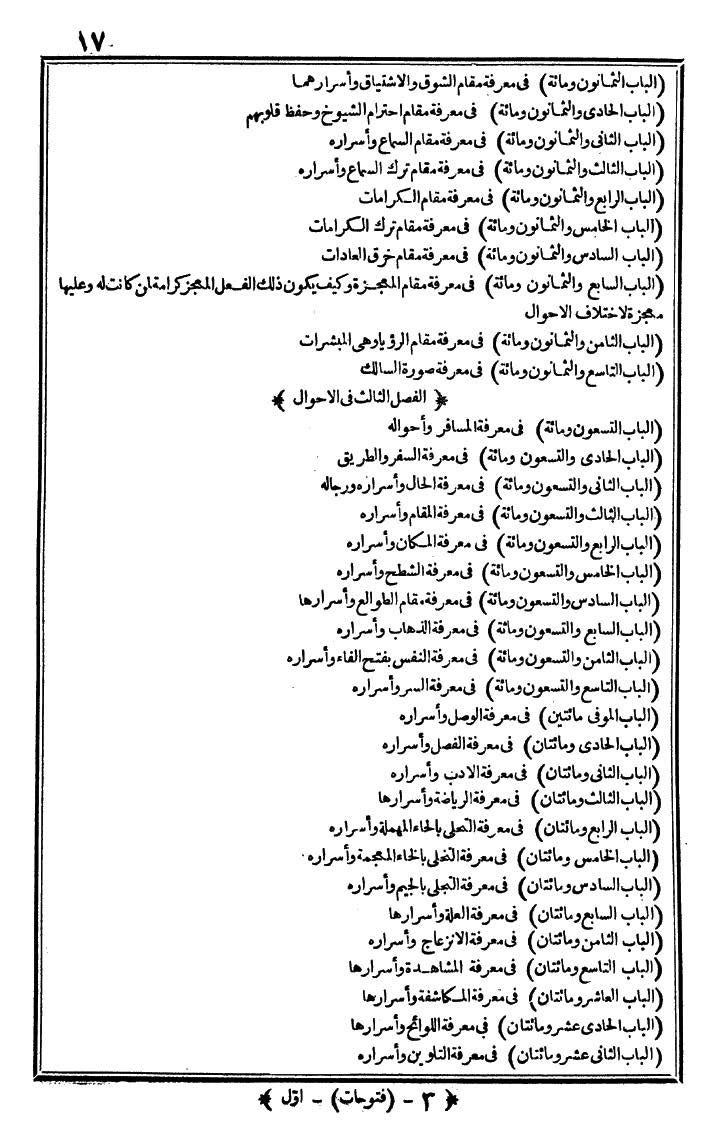 ١٧
(الباب الثمانون ومائة) فى معرفة مقام الشوق والاشتياق وأسرارهما
(الباب الحادى والثمانون ومائة) فى معرفة مقام احترام الشيوخ وحفظ قلوبهم
(الباب الثانى والثمانون ومائة) فى معرفة مقام السماع وأسراره
(الباب الثالث والثمانون ومائة) فى معرفة مقام ترك السماع وأسراره
(الباب الرابع والثمانون ومائة) فى معرفة مقام الكرامات
(الباب الخامس والثمانون ومائة) فى معرفة مقام ترك الكرامات
(الباب السادس والثمانون ومائة) فى معرفة مقام خرق العادات
(الباب السابع والثمانون ومائة) فى معرفة مقام المعجزة وكيف يكون ذلك الفعل المعجز كرامة لمن كانت له وعليها
معجزة لاختلاف الاحوال
(الباب الثامن والثمانون ومائة) فى معرفة مقام الرؤيا وهى المبشرات
(الباب التاسع والثمانون ومائة) فى معرفة صورة السالك
﴿ الفصل الثالث فى الاحوال ﴾
(الباب التسعون ومائة) فى معرفة المسافر وأحواله
(الباب الحادى والتسعون ومائة) فى معرفة السفر والطريق
(الباب الثانى والتسعون ومائة) فى معرفة الحال وأسراره ورجاله
(الباب الثالث والتسعون ومائة) فى معرفة المقام وأسراره
(الباب الرابع والتسعون ومائة) فى معرفة المكان وأسراره
(الباب الخامس والتسعون ومائة) فى معرفة الشطح وأسراره
(الباب السادس والتسعون ومائة) فى معرفة مقام الطوالع وأسرارها
(الباب السابع والتسعون ومائة) فى معرفة الذهاب وأسراره
(الباب الثامن والتسعون ومائة) فى معرفة النفس بفتح الفاء وأسراره
(الباب التاسع والتسعون ومائة) فى معرفة السر وأسراره
(الباب الموفى مائتين) فى معرفة الوصل وأسراره
(الباب الحادى ومائتان) فى معرفة الفصل وأسراره
(الباب الثانى ومائتان) فى معرفة الادب وأسراره
(الباب الثالث ومائتان) فى معرفة الرياضة وأسرارها
(الباب الرابع ومائتان) فى معرفة التحلى بالحاء المهملة وأسراره
(الباب الخامس ومائتان) فى معرفة التخلى بالخاء المعجمة وأسراره
(الباب السادس ومائتان) فى معرفة التجلى بالجيم وأسراره
(الباب السابع ومائتان) فى معرفة العلة وأسرارها
(الباب الثامن ومائتان) فى معرفة الانزعاج وأسراره
(الباب التاسع ومائتان) فى معرفة المشاهدة وأسرارها
(الباب العاشر ومائتان) فى معرفة المكاشفة وأسرارها
(الباب الحادى عشر ومائتان) فى معرفة اللوائح وأسرارها
(الباب الثانى عشر ومائتان) فى معرفة التلوين وأسراره
﴿ ٣ - (فتوحات) - اوّل ﴾